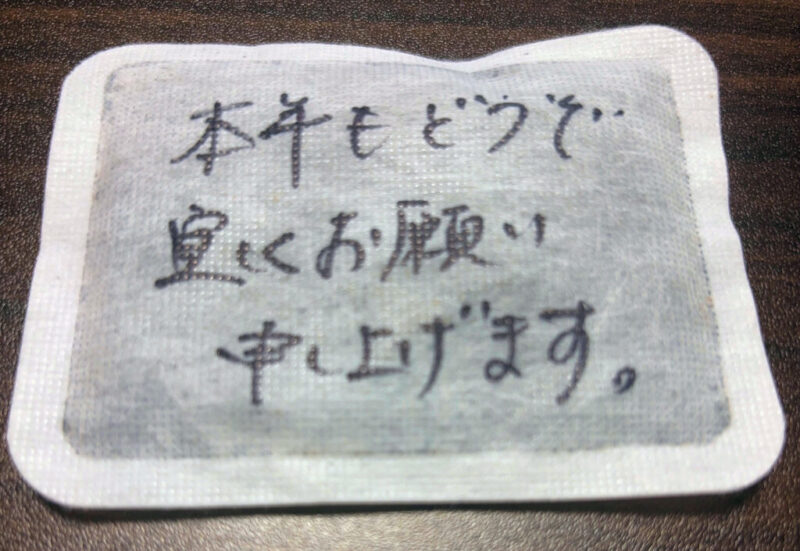 本年もどうぞ
宜しくお願い
申し上げます。